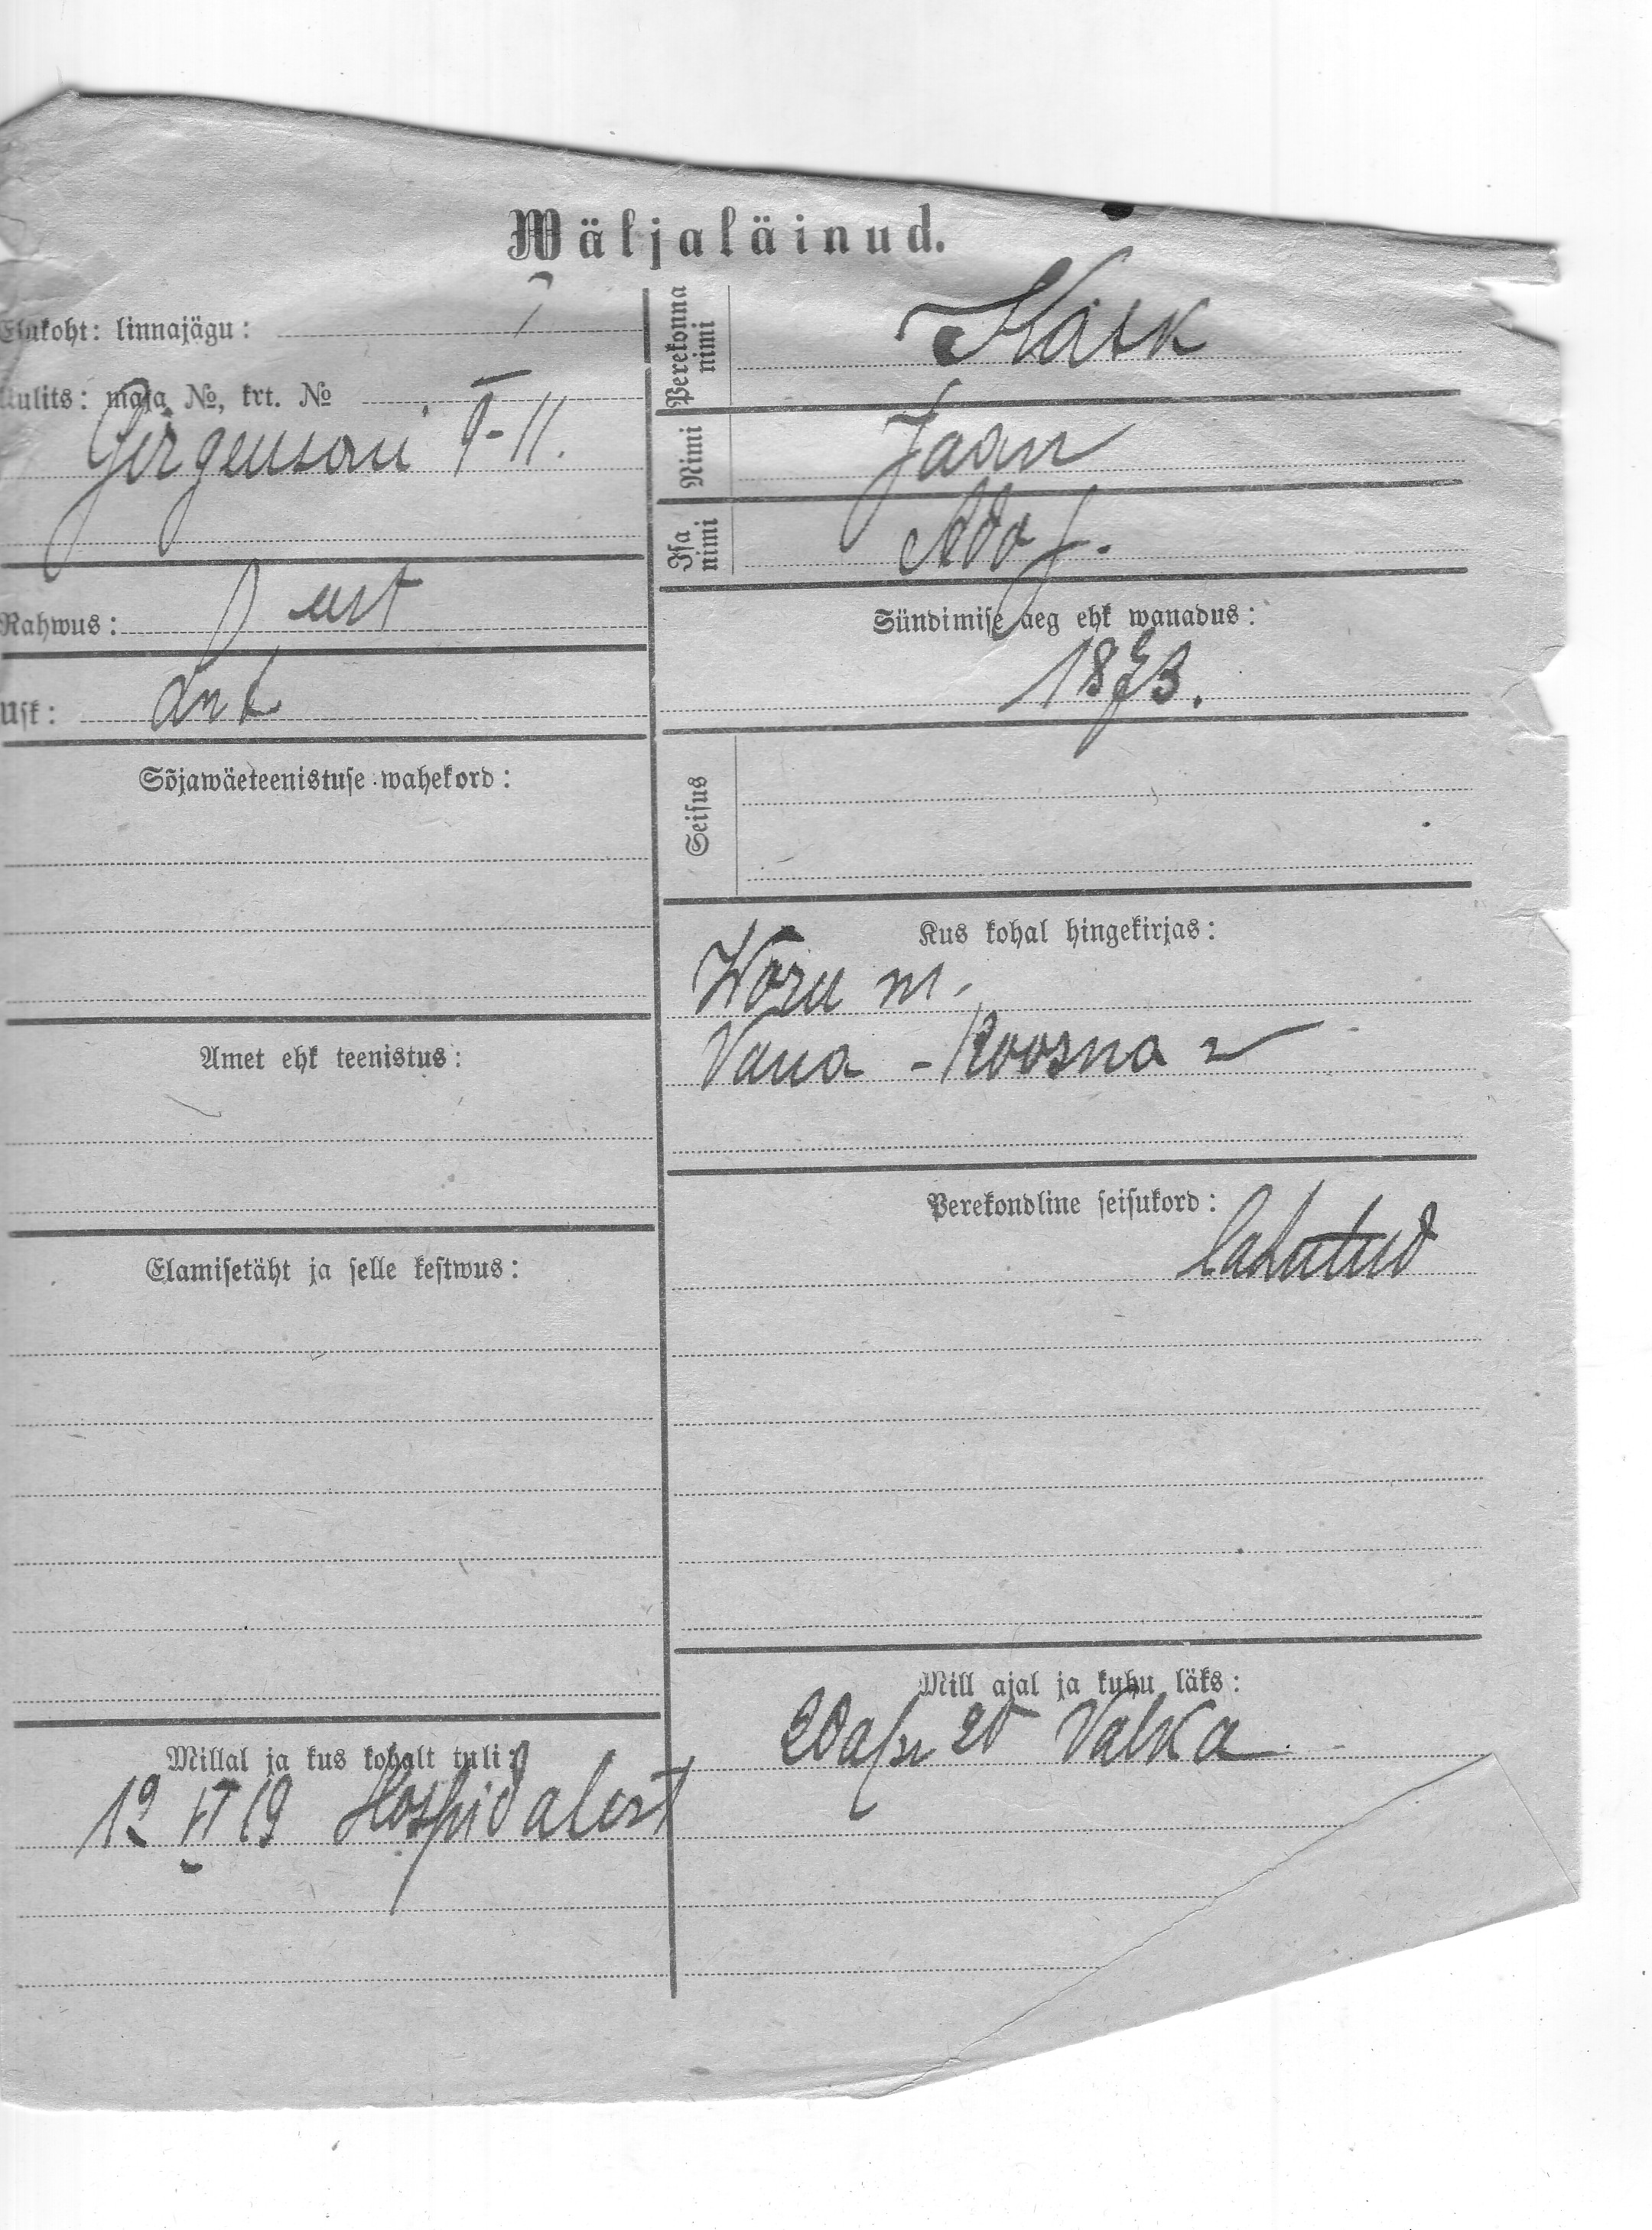 Wäljaläinud.
Elukoht: linnajägu:
Uulits: maja №, krt. №
Girgensoni 9-11.
Rahwus: eest
Usk: Lut
Sõjawäeteenistuse wahekord:
Amet ehk teenistus:
Elamisetäht ja selle kestwus:
Millal ja kus kohalt tuli:
12 VI 19 Hospidalist
Perekonna nimi Kask
Nimi Jaan
Isa nimi
Sündimise aeg ehk wanadus:
1873.
Seisus
Kus kohal hingekirjas:
Woru m.
Vana-Roosna
Perekondline seisukord:
lahutud
Mill ajal ja kuhu läks:
20 apr 20 Valka